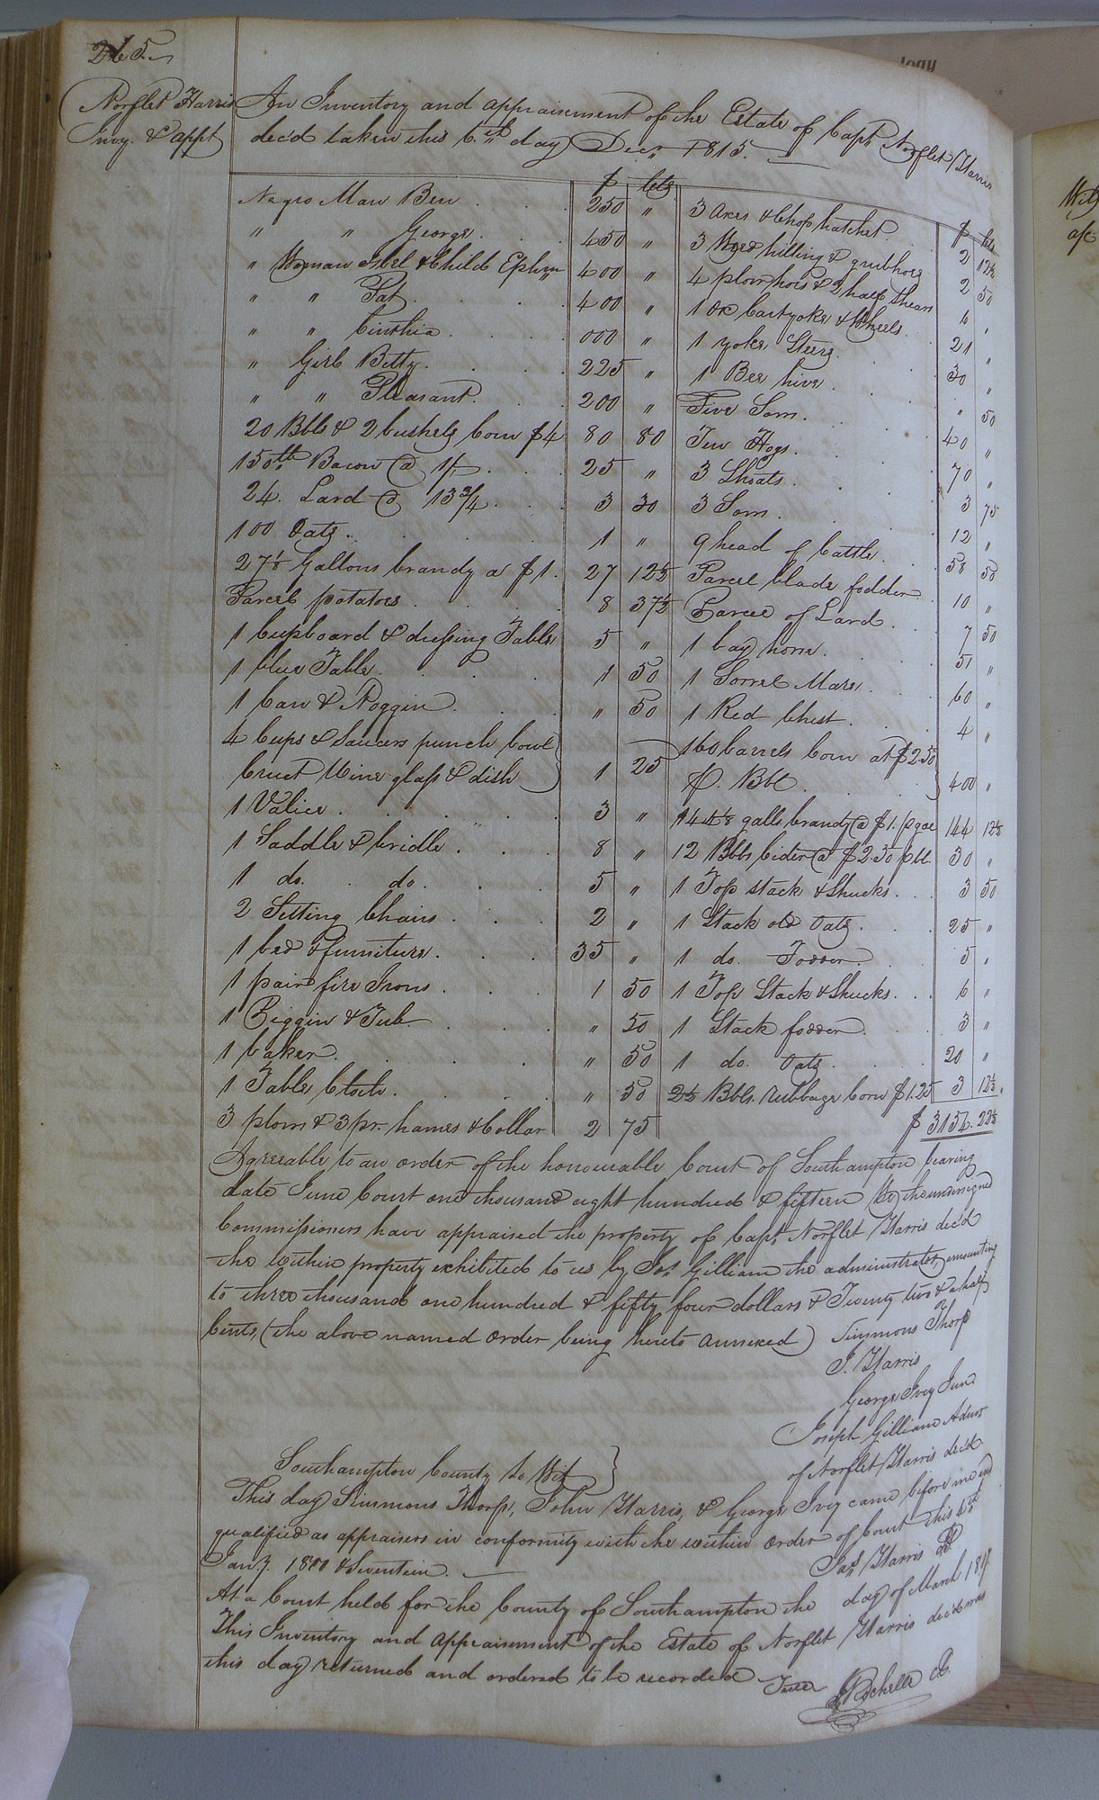 265
Norflet Harris
Invy. & Appt
An Inventory and appraisement of the Estate of Capt Norflet Harris
decd taken this 6th day Decr 1815.
$ Cts
Negro Man Ben 250 "
" " George 450 "
" Woman Isbel & Child Ephm 400 "
" " Pat 400 "
" " Cinthia 000 "
" Girl Betty 225 "
" " Pleasant 200 "
20 Bbls & 2 bushels Corn $4 80 80
150 lb Bacon @ 1/ 25 "
24 Lard @ 13 3/4 3 30
100 Oats 1 "
27 1/8 Gallons brandy a $1. 27 12 1/2
Parcel potatoes 8 37 1/2
1 Cupboard & dressing Table 5 "
1 blue Table 1 50
1 Can & Noggin " 50
4 Cups & Saucers punch bowl
Cruet Wine glass & dish 1 25
1 Valice 3 "
1 Saddle & bridle 8 "
1 do. do. 5 "
2 Sitting Chairs 2 "
1 bed & furniture 35 "
1 pair fire Irons 1 50
1 Piggin & Tub " 50
1 baker " 50
1 Table Cloth " 50
3 plows & 3 pr. hames & Collar 2 75
$ Cts
3 Axes & Chop hatchet 2 12 1/2
3 Weed hilling & grubhoes 2 50
4 plow hoes & 2 half shears 6 "
1 Ox Cart yoke & Wheels 21 "
1 yoke Steers 30 "
1 Bee hive " 50
Five Sows 40 "
Ten Hogs 70 "
3 Shoats 3 75
3 Sows 12 "
9 head of Cattle 58 50
Parcel blade fodder 10 "
Parcel of Lard 7 50
1 bay horse 51 "
1 Sorrel Mare 60 "
1 Red Chest 4 "
160 barrels Corn at $2.50
p. Bbl 400 "
144 1/8 galls brandy @ $1. p gal 144 12 1/2
12 Bbls Cider @ $2.50 pbl. 30 "
1 Top stack & Shucks 3 50
1 Stack old Oats 25 "
1 do. Fodder 5 "
1 Top Stack & Shucks 6 "
1 Stack fodder 3 "
1 do. Oats 20 "
2 1/2 Bbls. Rubbage Corn $1.25 3 12 1/2
$ 3154. 22 1/2
Agreeable to an order of the honourable Court of Southampton bearing
date June Court one thousand eight hundred & fifteen We the undersigned
Commissioners have appraised the property of Capt Norflet Harris decd
the within property exhibited to us by Jos. Gilliam the administrator amounting
to three thousand one hundred & fifty four dollars & Twenty two & a half
Cents, (the above named order being hereto annexed) Simmons Thorp
J. Harris
George Ivey Junr
Joseph Gilliam Admr
of Norflet Harris decd
Southampton County to Wit
This day Simmons Thorp, John Harris, & George Ivey came before me and
qualified as appraisers in conformity with the within order of Court this
Jany. 1800 & Seventeen.
Jas. Harris
At a Court held for the County of Southampton the day of March 1817
This Inventory and Appraisement of the Estate of Norflet Harris decd was
this day returned and ordered to be recorded
Teste
J Rochelle